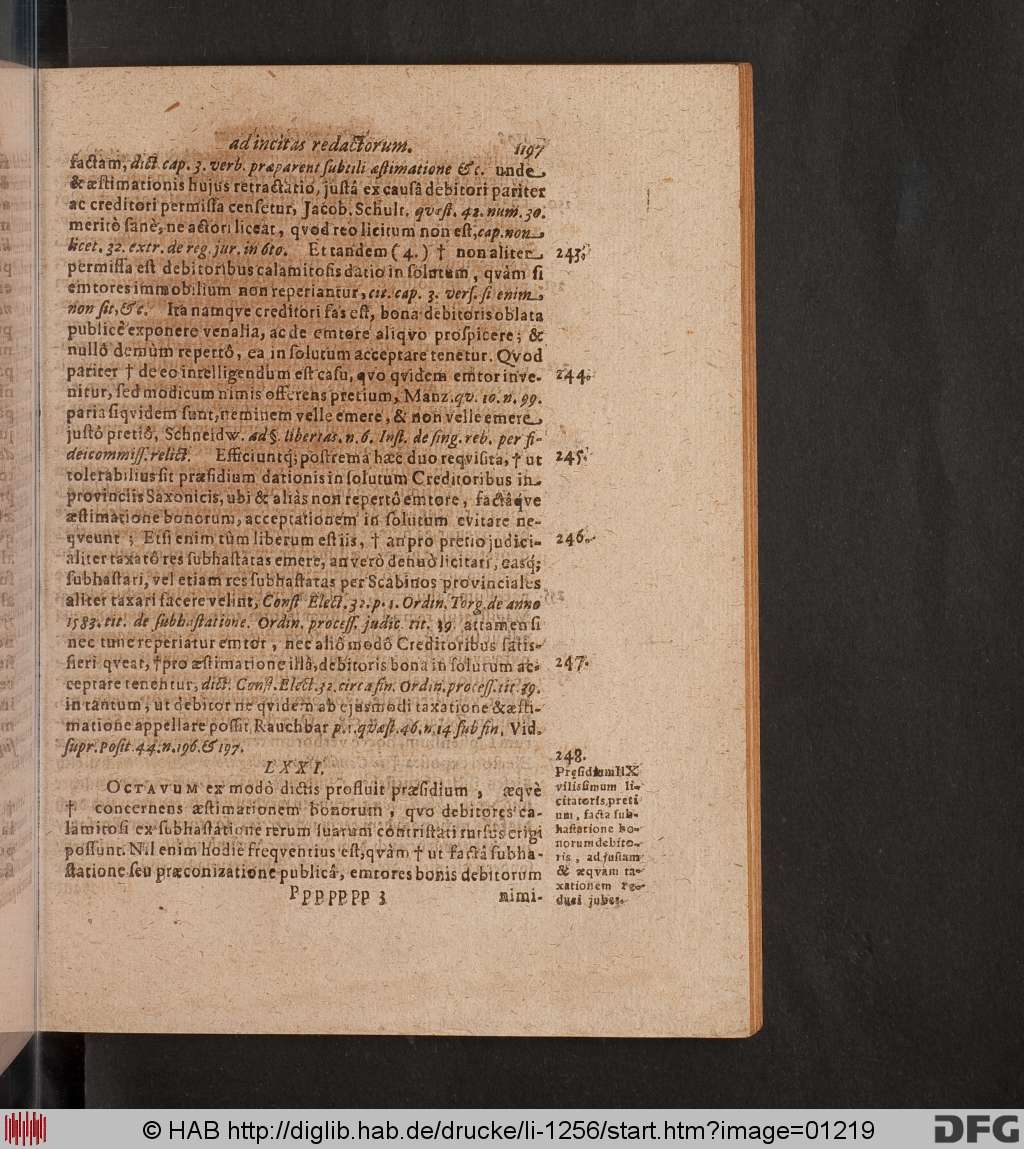 ad incitas redactorum. 1197
factam, dict. cap. 3. verb. præparent subtili æstimatione &c. unde
& æstimationis hujus retractatio, justâ ex causâ debitori pariter
ac creditori permissa censetur, Jacob. Schult. quæst. 42. num. 30.
meritò sanè, ne actori liceat, qvod reo licitum non est, cap. non
licet. 32. extr. de reg. jur. in 6to. Et tandem (4.) † non aliter 243.
permissa est debitoribus calamitosis datio in solutum, qvàm si
emtores immobilium non reperiantur, cit. cap. 3. vers. si enim
non sit, &c. Ita namqve creditori fas est, bona debitoris oblata
publicè exponere venalia, ac de emtore aliqvo prospicere; &
nullô demùm repertô, ea in solutum acceptare tenetur. Qvod
pariter † de eo intelligendum est casu, qvo qvidem emtor inve- 244.
nitur, sed modicum nimis offerens pretium, Manz. qv. 10. n. 99.
paria siqvidem sunt, neminem velle emere, & non velle emere
justô pretiô, Schneidw. ad §. libertas. n. 6. Inst. de sing. reb. per fi-
deicommiss. relict. Efficiuntq; postrema hæc duo reqvisita, † ut 245.
tolerabilius sit præsidium dationis in solutum Creditoribus in
provinciis Saxonicis, ubi & aliàs non repertô emtore, factâqve
æstimatione bonorum, acceptationem in solutum evitare ne-
qveunt; Etsi enim tùm liberum est iis, † an pro pretio judici- 246.
aliter taxatô res subhastatas emere, an verò denuò licitari, easq;
subhastari, vel etiam res subhastatas per Scabinos provinciales
aliter taxari facere velint, Const. Elect. 32. p. 1. Ordin. Torg. de anno
1583. tit. de subhastatione. Ordin. process. judic. tit. 39. attamen si
nec tunc reperiatur emtor, nec aliô modô Creditoribus satis-
fieri qveat, † pro æstimatione illâ, debitoris bona in solutum ac- 247.
ceptare tenentur, dict. Const. Elect. 32. circa fin. Ordin. process. tit. 39.
in tantum, ut debitor ne qvidem ab ejusmodi taxatione & æsti-
matione appellare possit, Rauchbar p. 1. qvæst. 46. n. 14. sub fin. Vid.
supr. Posit. 44. n. 196. & 197.
LXXI.
OCTAVUM ex modò dictis profluit præsidium, æqvè
† concernens æstimationem bonorum, qvo debitores ca-
lamitosi ex subhastatione rerum suarum contristati rursus erigi
possunt. Nil enim hodiè freqventius est, qvàm † ut factâ subha-
statione seu præconizatione publicâ, emtores bonis debitorum
Ppppppp 3 nimi-
248.
Præsidium IIX
vilissimum li-
citatoris preti
um, facta sub-
hastatione bo-
norum debito-
ris, ad justam
& æqvam ta-
xationem re-
duci jubet.
© HAB http://diglib.hab.de/drucke/li-1256/start.htm?image=01219
DFG